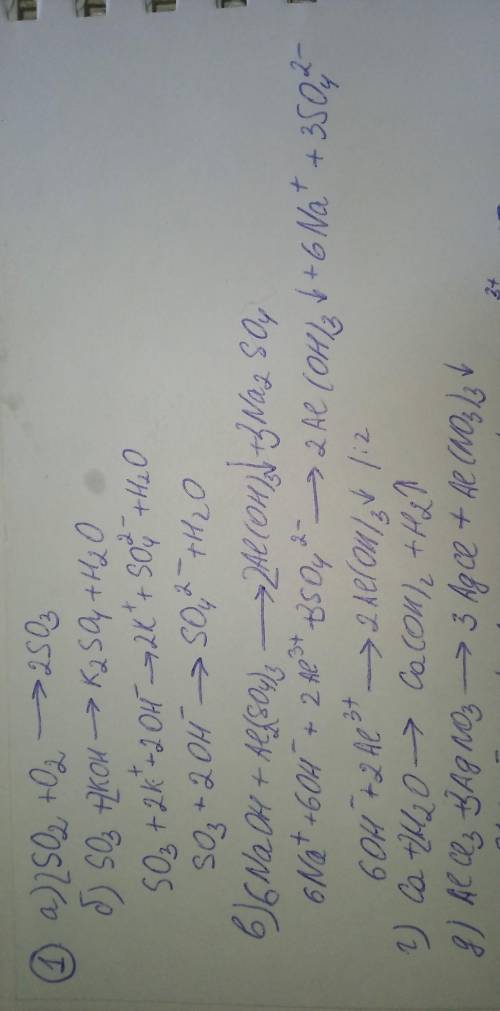 ① а) 2SO₂ + O₂ → 2SO₃
б) SO₃ + 2KOH → K₂SO₄ + H₂O
SO₃ + 2K⁺ + 2OH⁻ → 2K⁺ + SO₄²⁻ + H₂O
SO₃ + 2OH⁻ → SO₄²⁻ + H₂O
в) 6NaOH + Al₂(SO₄)₃ → 2Al(OH)₃↓ + 3Na₂SO₄
6Na⁺ + 6OH⁻ + 2Al³⁺ + 3SO₄²⁻ → 2Al(OH)₃↓ + 6Na⁺ + 3SO₄²⁻
6OH⁻ + 2Al³⁺ → 2Al(OH)₃↓ |:2
г) Ca + 2H₂O → Ca(OH)₂ + H₂↑
д) AlCl₃ + 3AgNO₃ → 3AgCl + Al(NO₃)₃↓
3+